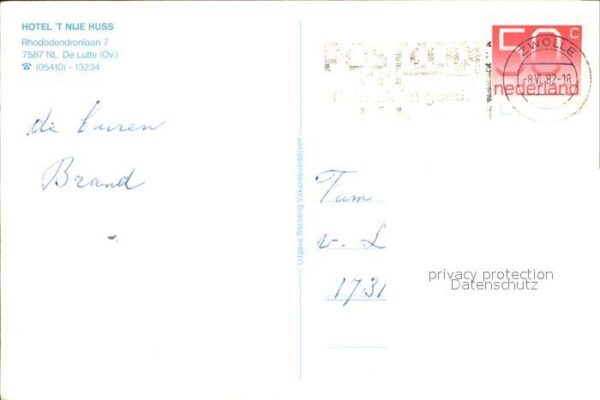 HOTEL 'T NIJE HUSS
Rhododendronlaan 7
7587 NL De Lutte (Ov.)
☎ (05410) - 13234
de buren
Brand
© Uitgave Stichting Vakantieverblijven
50 C
nederland
ZWOLLE
-8.VI.82-18
POSTCODE
Gebruik 'm goed.
Fam
v. L
1731
privacy protection
Datenschutz